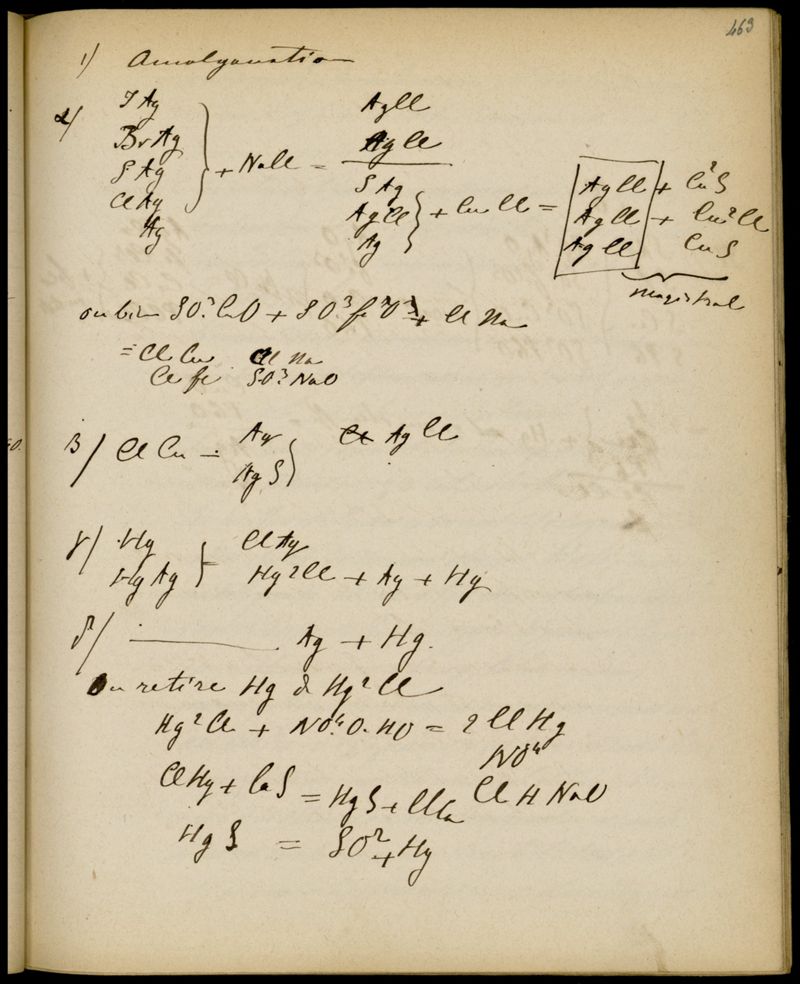 469
1) Amalgamation
α) I Ag
Br Ag
S Ag
Cl Ag
Ag
+ NaCl =
AgCl
AgCl
S Ag
AgCl
Ag
+ Cu Cl =
AgCl + Cu²S
AgCl + Cu²Cl
AgCl CuS
magistral
ou bien SO³CuO + SO³fe²O³ + Cl Na
= Cl Cu Cl Na
Cl fe SO³NaO
β) Cl Cu = Ag
Ag S
AgCl
γ) Hg
Hg Ag
= Cl Ag
Hg²Cl + Ag + Hg
δ) Ag + Hg.
On retire Hg d Hg²Cl
Hg²Cl + NO⁴O.HO = 2 Cl Hg
NO⁴
ClHg + CaS = HgS + ClCa Cl H NaO
HgS = SO² + Hg